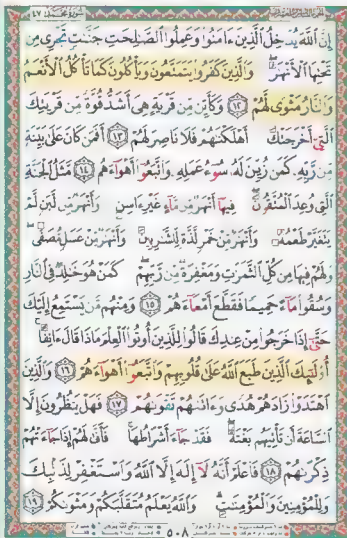 سورة محمد ٤٧
إِنَّ ٱللَّهَ يُدْخِلُ ٱلَّذِينَ ءَامَنُوا۟ وَعَمِلُوا۟ ٱلصَّٰلِحَٰتِ جَنَّٰتٍ تَجْرِى مِن
تَحْتِهَا ٱلْأَنْهَٰرُ ۖ وَٱلَّذِينَ كَفَرُوا۟ يَتَمَتَّعُونَ وَيَأْكُلُونَ كَمَا تَأْكُلُ ٱلْأَنْعَٰمُ
وَٱلنَّارُ مَثْوًى لَّهُمْ ١٢ وَكَأَيِّن مِّن قَرْيَةٍ هِىَ أَشَدُّ قُوَّةً مِّن قَرْيَتِكَ
ٱلَّتِىٓ أَخْرَجَتْكَ أَهْلَكْنَٰهُمْ فَلَا نَاصِرَ لَهُمْ ١٣ أَفَمَن كَانَ عَلَىٰ بَيِّنَةٍ
مِّن رَّبِّهِۦ كَمَن زُيِّنَ لَهُۥ سُوٓءُ عَمَلِهِۦ وَٱتَّبَعُوٓا۟ أَهْوَآءَهُم ١٤ مَّثَلُ ٱلْجَنَّةِ
ٱلَّتِى وُعِدَ ٱلْمُتَّقُونَ ۖ فِيهَآ أَنْهَٰرٌ مِّن مَّآءٍ غَيْرِ ءَاسِنٍ وَأَنْهَٰرٌ مِّن لَّبَنٍ لَّمْ
يَتَغَيَّرْ طَعْمُهُۥ وَأَنْهَٰرٌ مِّنْ خَمْرٍ لَّذَّةٍ لِّلشَّٰرِبِينَ وَأَنْهَٰرٌ مِّنْ عَسَلٍ مُّصَفًّى ۖ
وَلَهُمْ فِيهَا مِن كُلِّ ٱلثَّمَرَٰتِ وَمَغْفِرَةٌ مِّن رَّبِّهِمْ ۖ كَمَنْ هُوَ خَٰلِدٌ فِى ٱلنَّارِ
وَسُقُوا۟ مَآءً حَمِيمًا فَقَطَّعَ أَمْعَآءَهُمْ ١٥ وَمِنْهُم مَّن يَسْتَمِعُ إِلَيْكَ
حَتَّىٰٓ إِذَا خَرَجُوا۟ مِنْ عِندِكَ قَالُوا۟ لِلَّذِينَ أُوتُوا۟ ٱلْعِلْمَ مَاذَا قَالَ ءَانِفًا ۚ
أُو۟لَٰٓئِكَ ٱلَّذِينَ طَبَعَ ٱللَّهُ عَلَىٰ قُلُوبِهِمْ وَٱتَّبَعُوٓا۟ أَهْوَآءَهُمْ ١٦ وَٱلَّذِينَ
ٱهْتَدَوْا۟ زَادَهُمْ هُدًى وَءَاتَىٰهُمْ تَقْوَىٰهُمْ ١٧ فَهَلْ يَنظُرُونَ إِلَّا
ٱلسَّاعَةَ أَن تَأْتِيَهُم بَغْتَةً ۖ فَقَدْ جَآءَ أَشْرَاطُهَا ۚ فَأَنَّىٰ لَهُمْ إِذَا جَآءَتْهُمْ
ذِكْرَىٰهُمْ ١٨ فَٱعْلَمْ أَنَّهُۥ لَآ إِلَٰهَ إِلَّا ٱللَّهُ وَٱسْتَغْفِرْ لِذَنۢبِكَ
وَلِلْمُؤْمِنِينَ وَٱلْمُؤْمِنَٰتِ ۗ وَٱللَّهُ يَعْلَمُ مُتَقَلَّبَكُمْ وَمَثْوَىٰكُمْ ١٩
٥٠٨